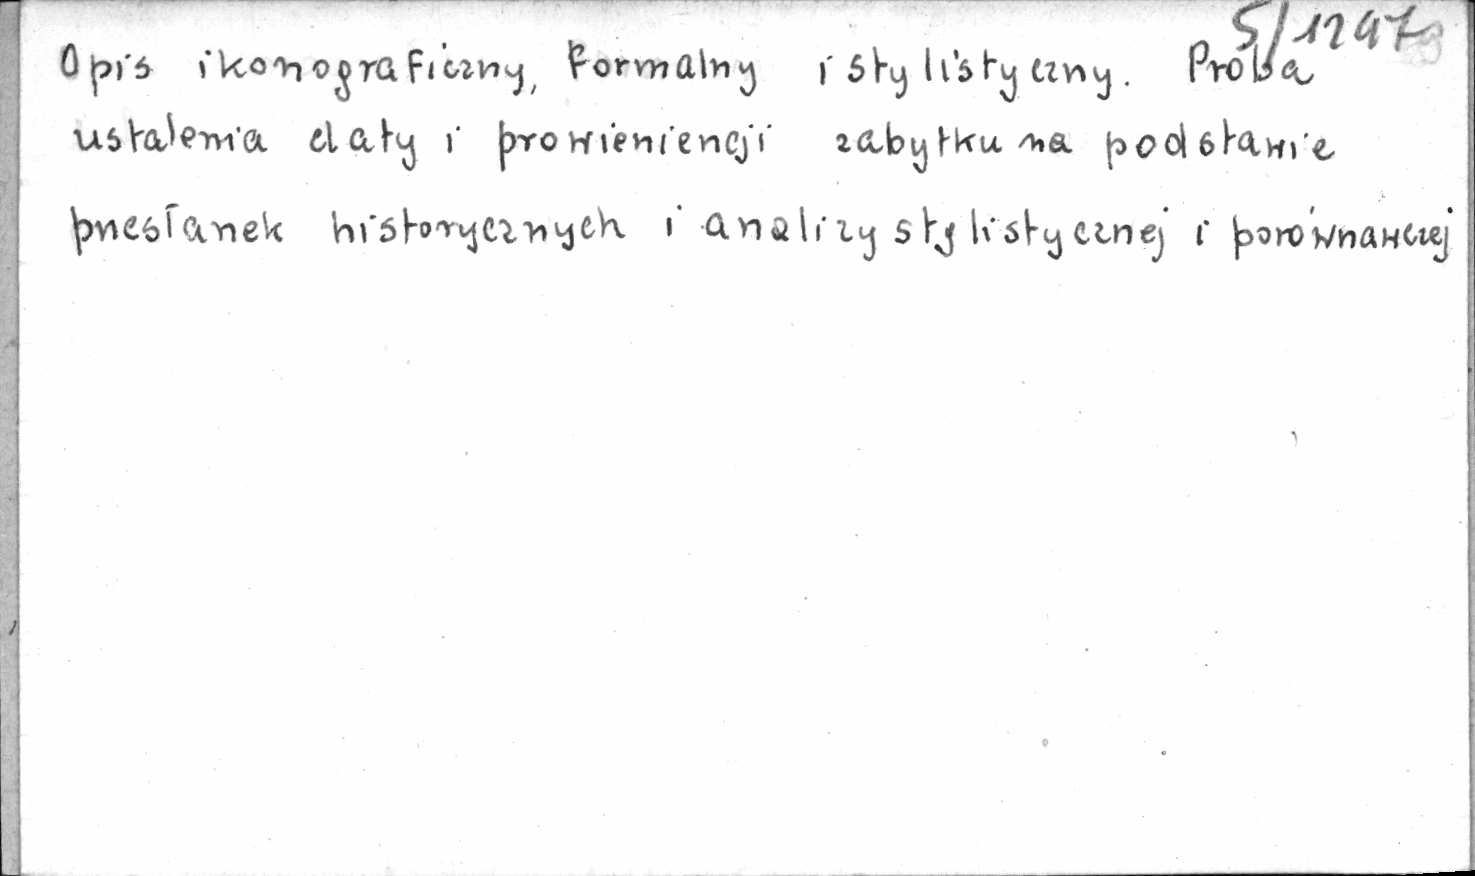 5/1297
Opis ikonograficzny, formalny i stylistyczny. Próba
ustalenia daty i prowieniencji zabytku na podstawie
przesłanek historycznych i analizy stylistycznej i porównawczej